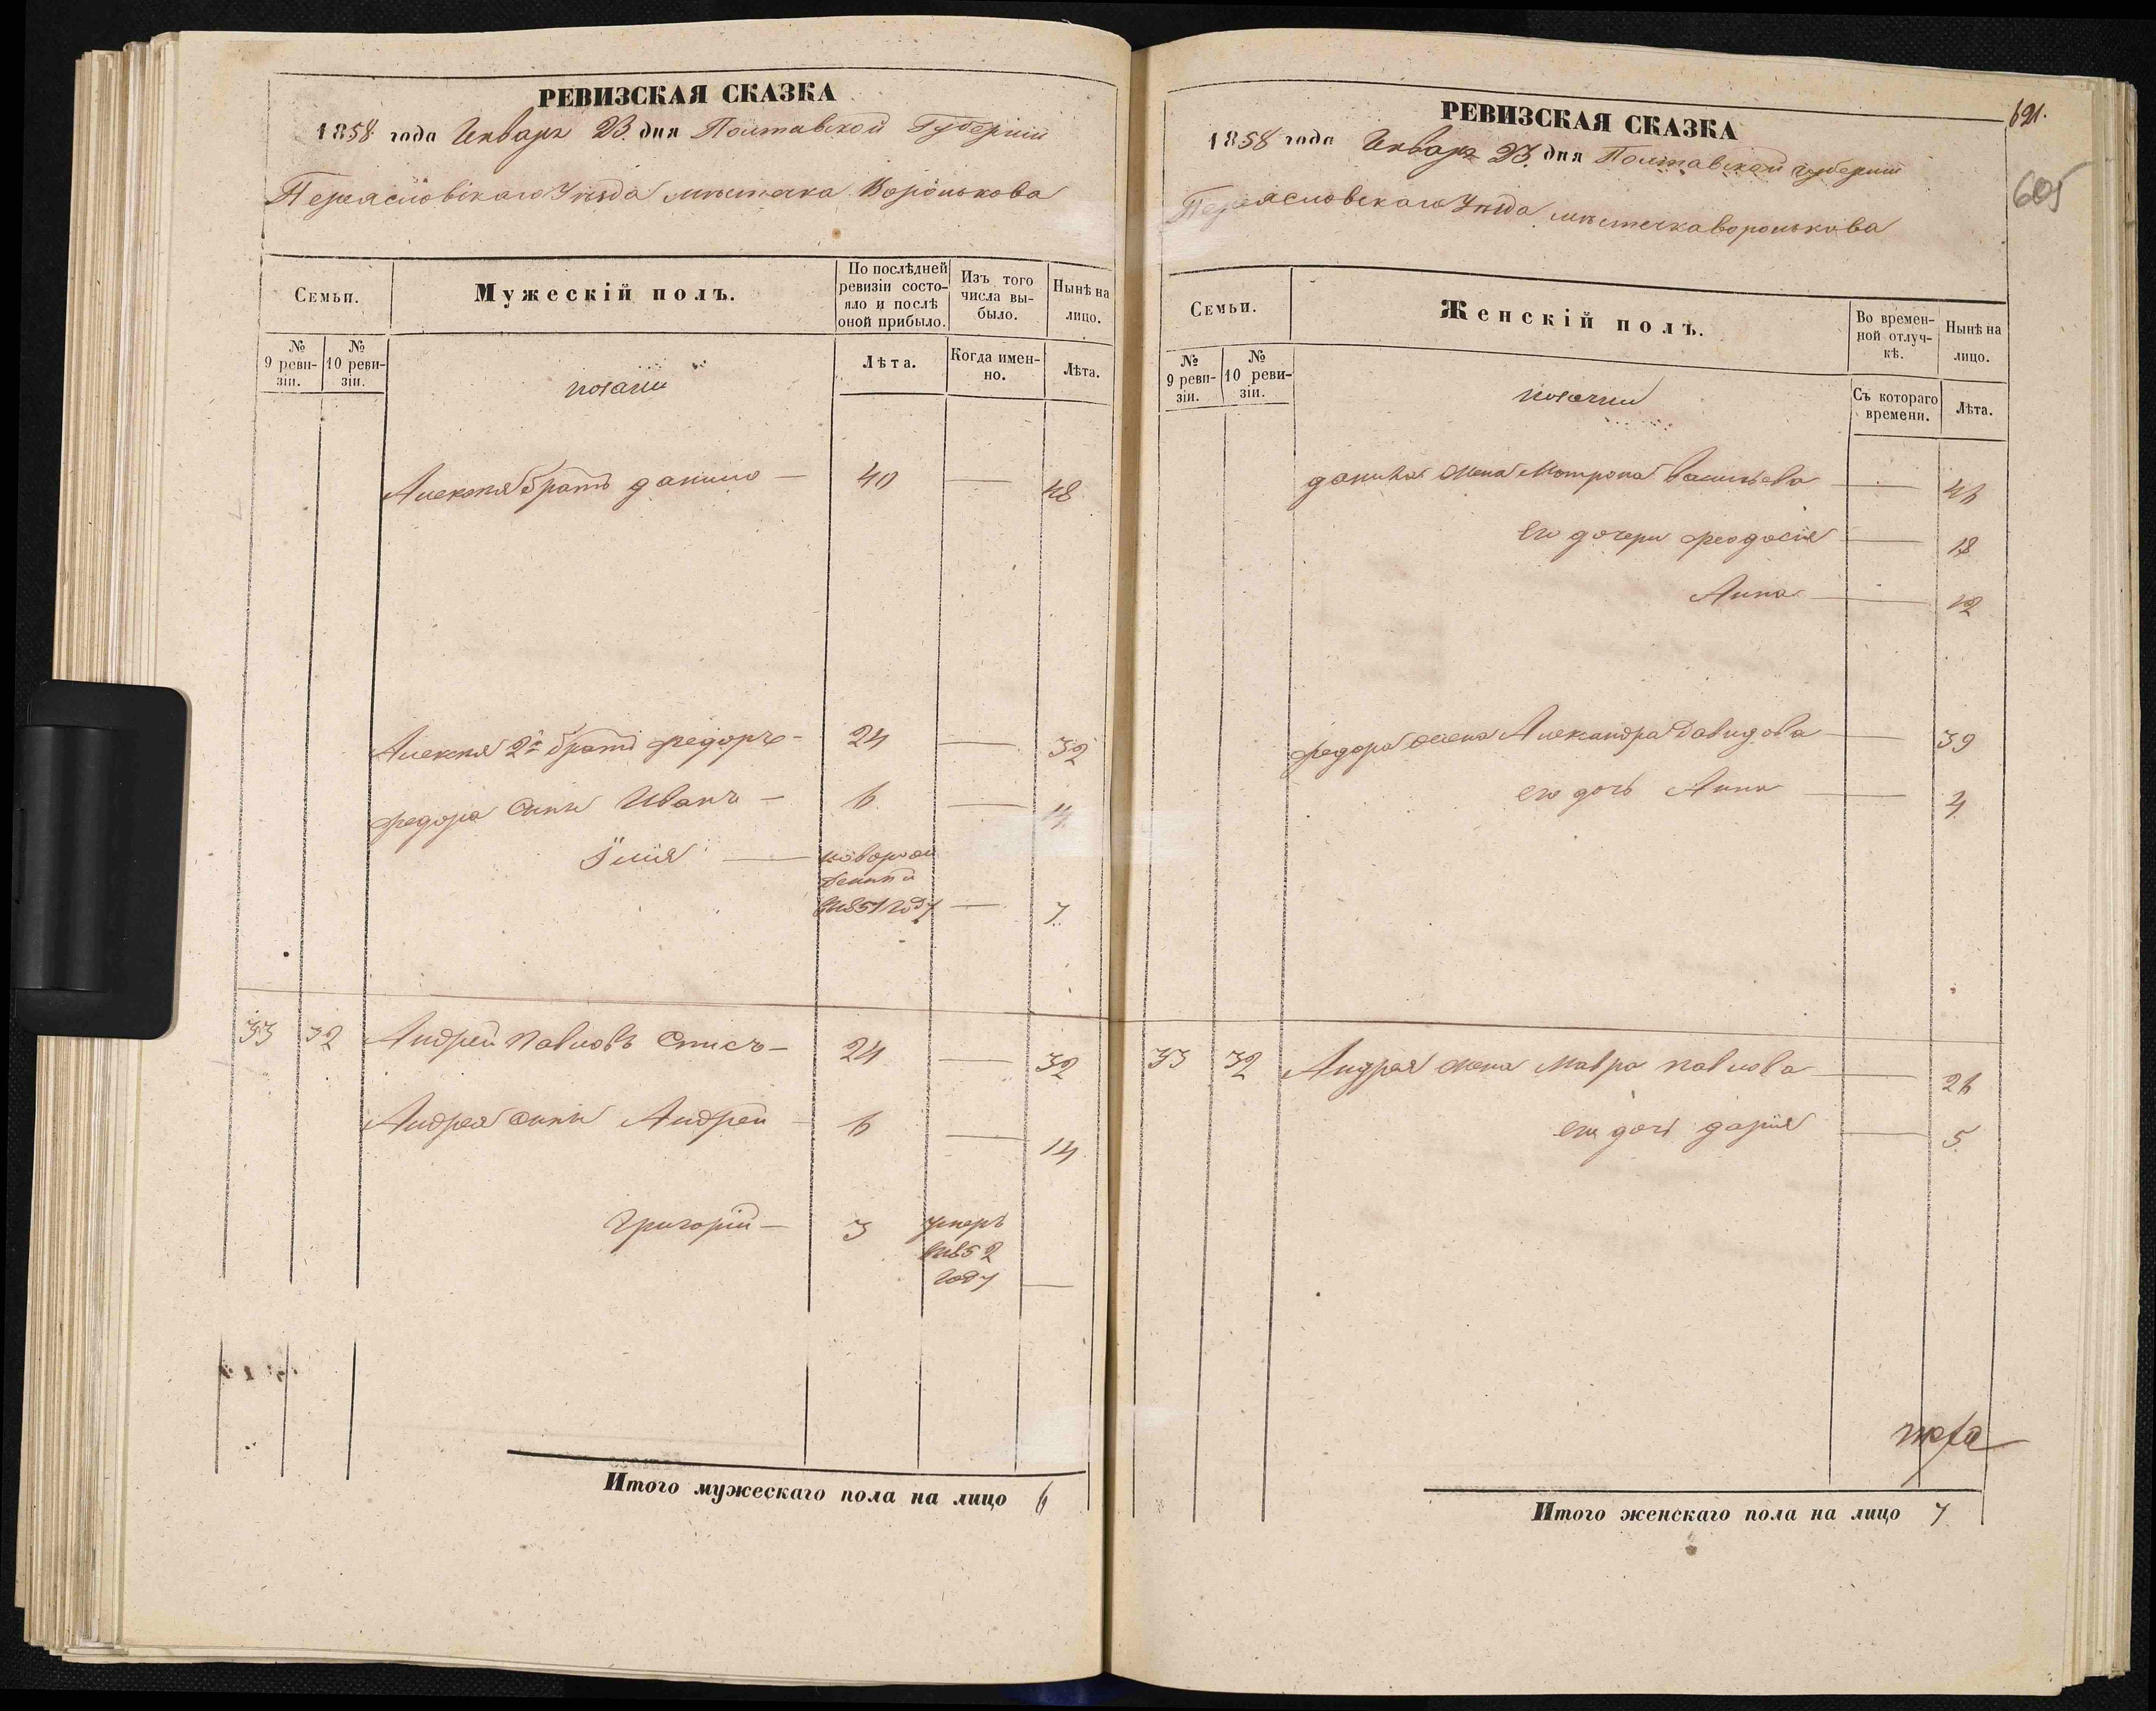 РЕВИЗСКАЯ СКАЗКА
1858 года Января 23 дня Полтавской Губерніи
Переясловскаго Уѣзда мѣстечка Воронькова
Семьи.
Мужескій полъ.
По послѣдней ревизіи состояло и послѣ оной прибыло.
Изъ того числа выбыло.
Нынѣ на лицо.
№ 9 ревизіи.
№ 10 ревизіи.
козаки
Лѣта.
Когда именно.
Лѣта.
Алексѣя братъ данило — 40 — 48
Алексѣя 2й братъ федоръ — 24 — 32
федора сынъ Иванъ — 6 — 14
Илія — новорож
денный
въ 1851 году — 7
33 32 Андрей Павловъ — 24 — 32
Андрея сынъ Андрей — 6 — 14
Григорій — 3 умеръ
въ 1852
году —
Итого мужескаго пола на лицо 6
РЕВИЗСКАЯ СКАЗКА
621.
605
1858 года Января 23 дня Полтавской губерніи
Переясловскаго Уѣзда мѣстечка воронькова
Семьи.
Женскій полъ.
Во временной отлучкѣ.
Нынѣ на лицо.
№ 9 ревизіи.
№ 10 ревизіи.
козачки
Съ котораго времени.
Лѣта.
данила жена Мотрона Васильева — 46
его дочери феодосія — 18
Анна — 12
федора жена Александра Давидова — 39
его дочь Анна — 4
33 32 Андрея жена Мавра павлова — 26
его дочь дарія — 5
Итого женскаго пола на лицо 7